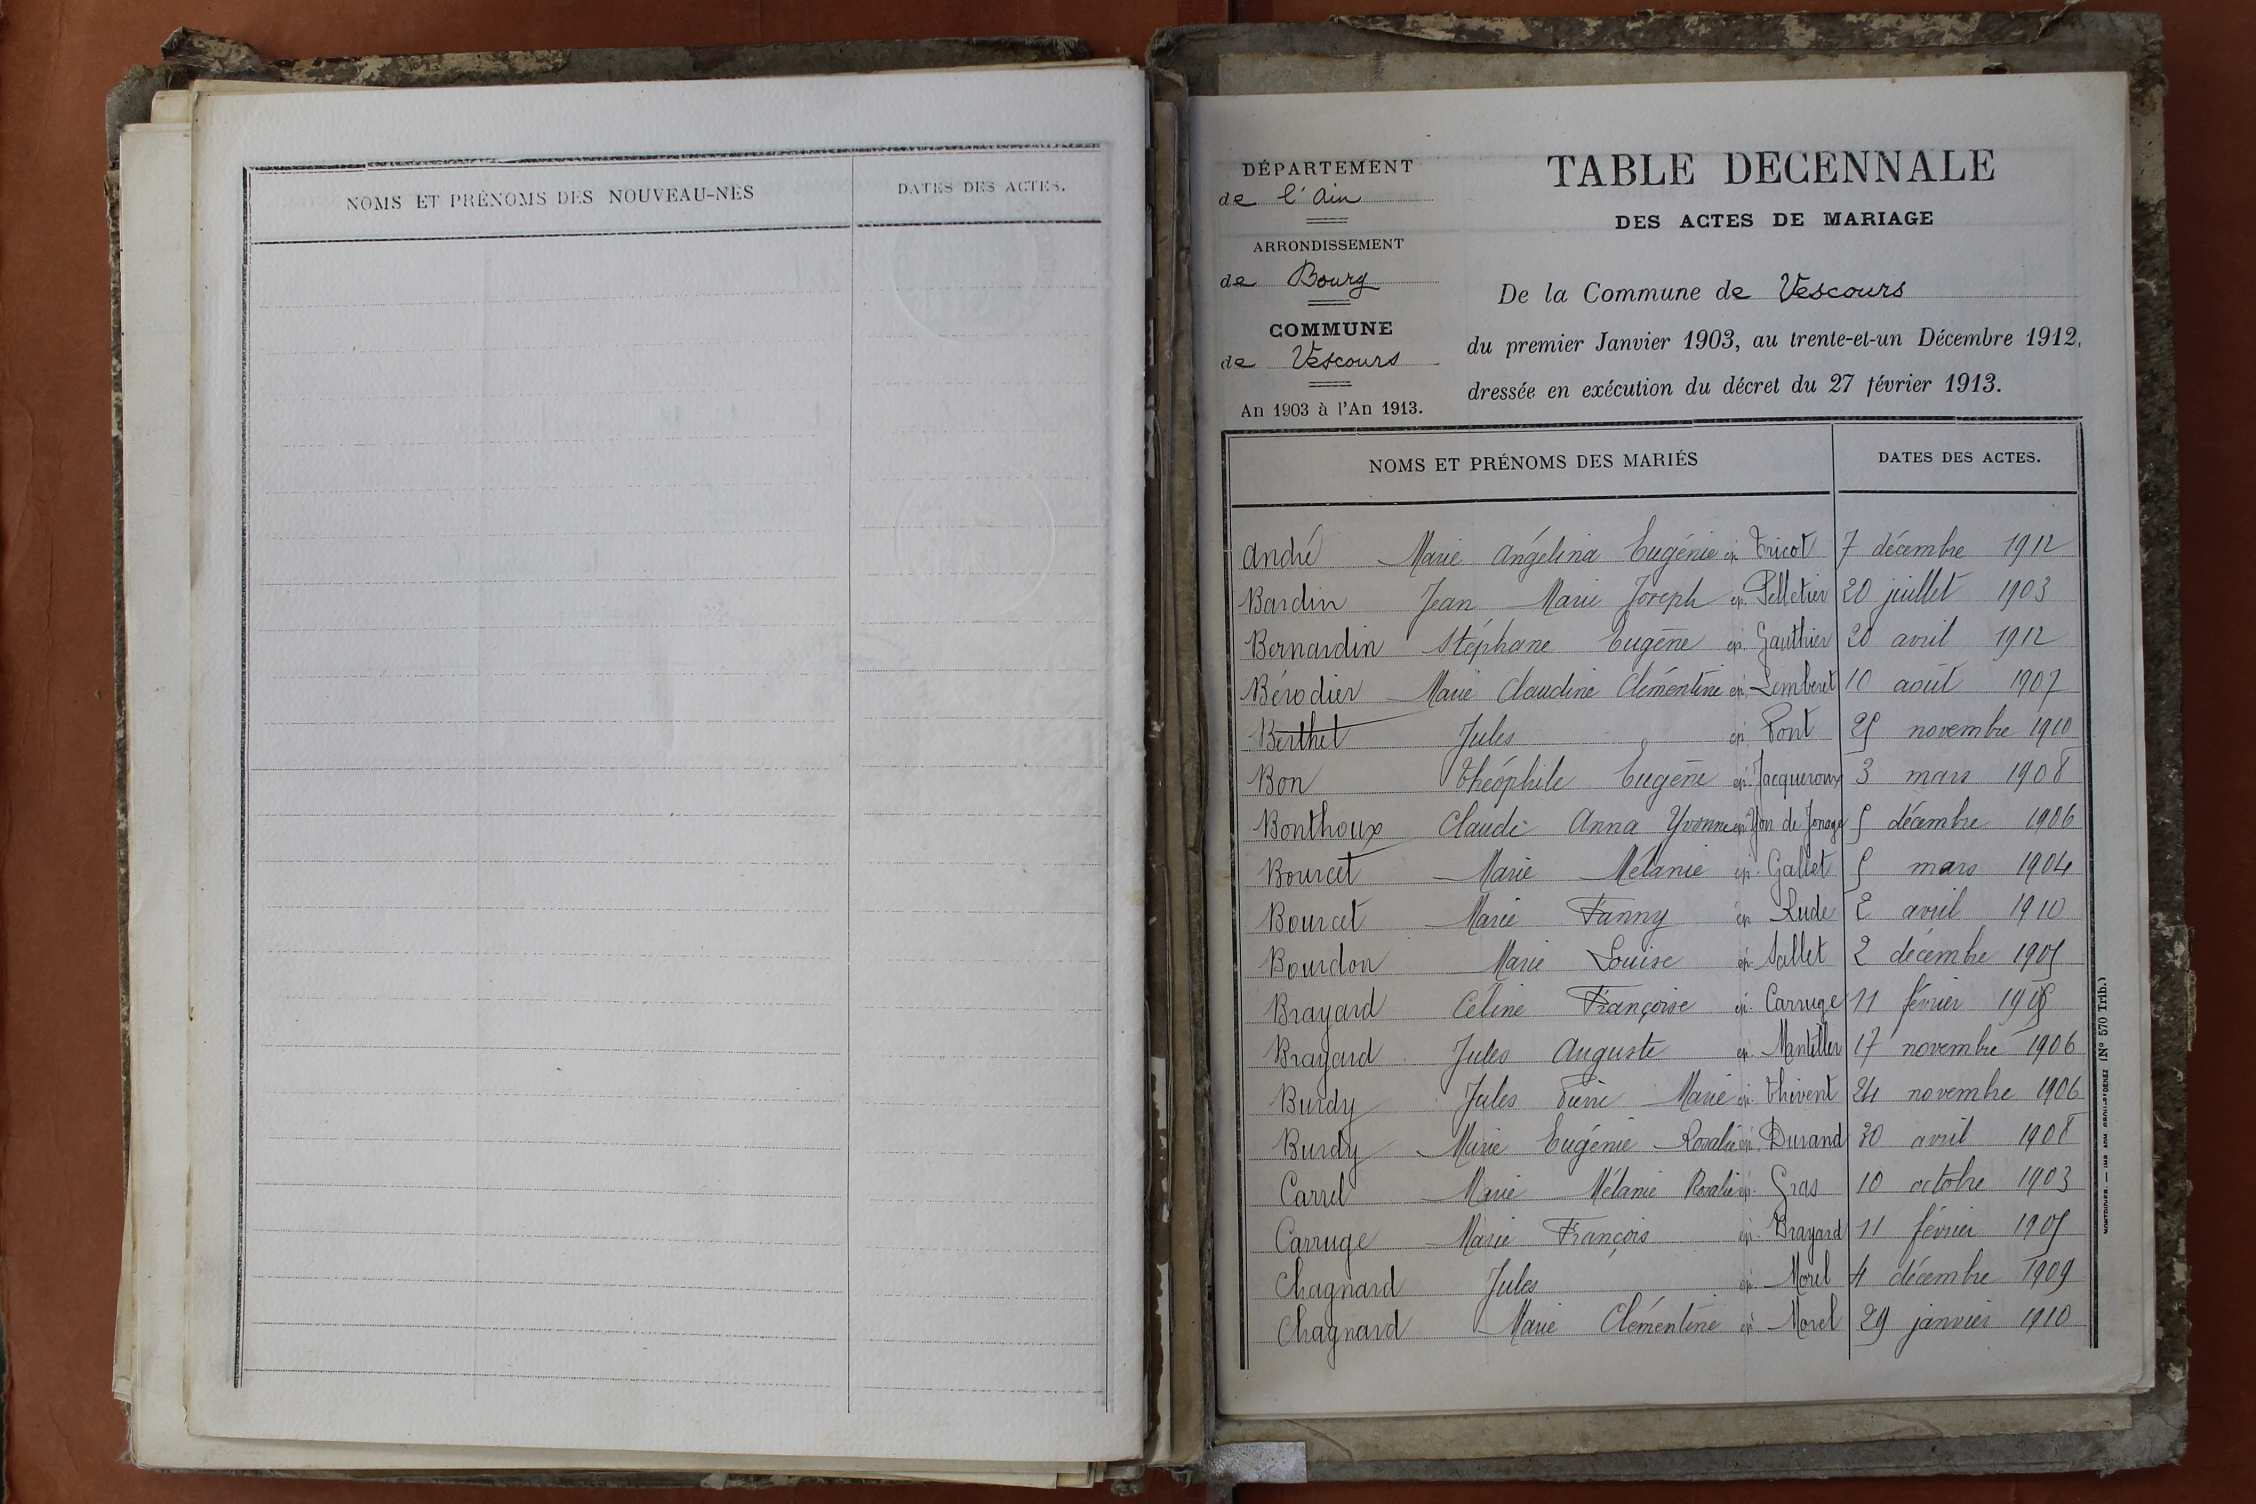 NOMS ET PRÉNOMS DES NOUVEAU-NÉS
DATES DES ACTES.
DÉPARTEMENT
de l'Ain
ARRONDISSEMENT
de Bourg
COMMUNE
de Vescours
An 1903 à l'An 1913.
TABLE DECENNALE
DES ACTES DE MARIAGE
De la Commune de Vescours
du premier Janvier 1903, au trente-et-un Décembre 1912,
dressée en exécution du décret du 27 février 1913.
NOMS ET PRÉNOMS DES MARIÉS
DATES DES ACTES.
André Marie Angélina Eugénie ép. Tricot 7 décembre 1912
Bardin Jean Marie Joseph ép. Pelletier 20 juillet 1903
Bernardin Stéphane Eugène ép. Gauthier 20 avril 1912
Bérodier Marie Claudine Clémentine ép. Lemberet 10 août 1907
Berthet Jules ép. Pont 25 novembre 1910
Bon Théophile Eugène ép. Jacqueroux 3 mars 1908
Bonthoux Claude Anna Yvonne ép. Yon de Jonage 5 décembre 1906
Bourcet Marie Mélanie ép. Gallet 5 mars 1904
Bourcet Marie Fanny ép. Rude 2 avril 1910
Bourdon Marie Louise ép. Sallet 2 décembre 1905
Brayard Céline Françoise ép. Carruge 11 février 1905
Brayard Jules Auguste ép. Mantiller 17 novembre 1906
Burdy Jules Pierre Marie ép. Thivent 24 novembre 1906
Burdy Marie Eugénie Rosalie ép. Durand 30 avril 1908
Carrel Marie Mélanie Rosalie ép. Gras 10 octobre 1903
Carruge Marie François ép. Brayard 11 février 1905
Chagnard Jules ép. Morel 4 décembre 1909
Chagnard Marie Clémentine ép. Morel 29 janvier 1910
(N° 570 Trib.)